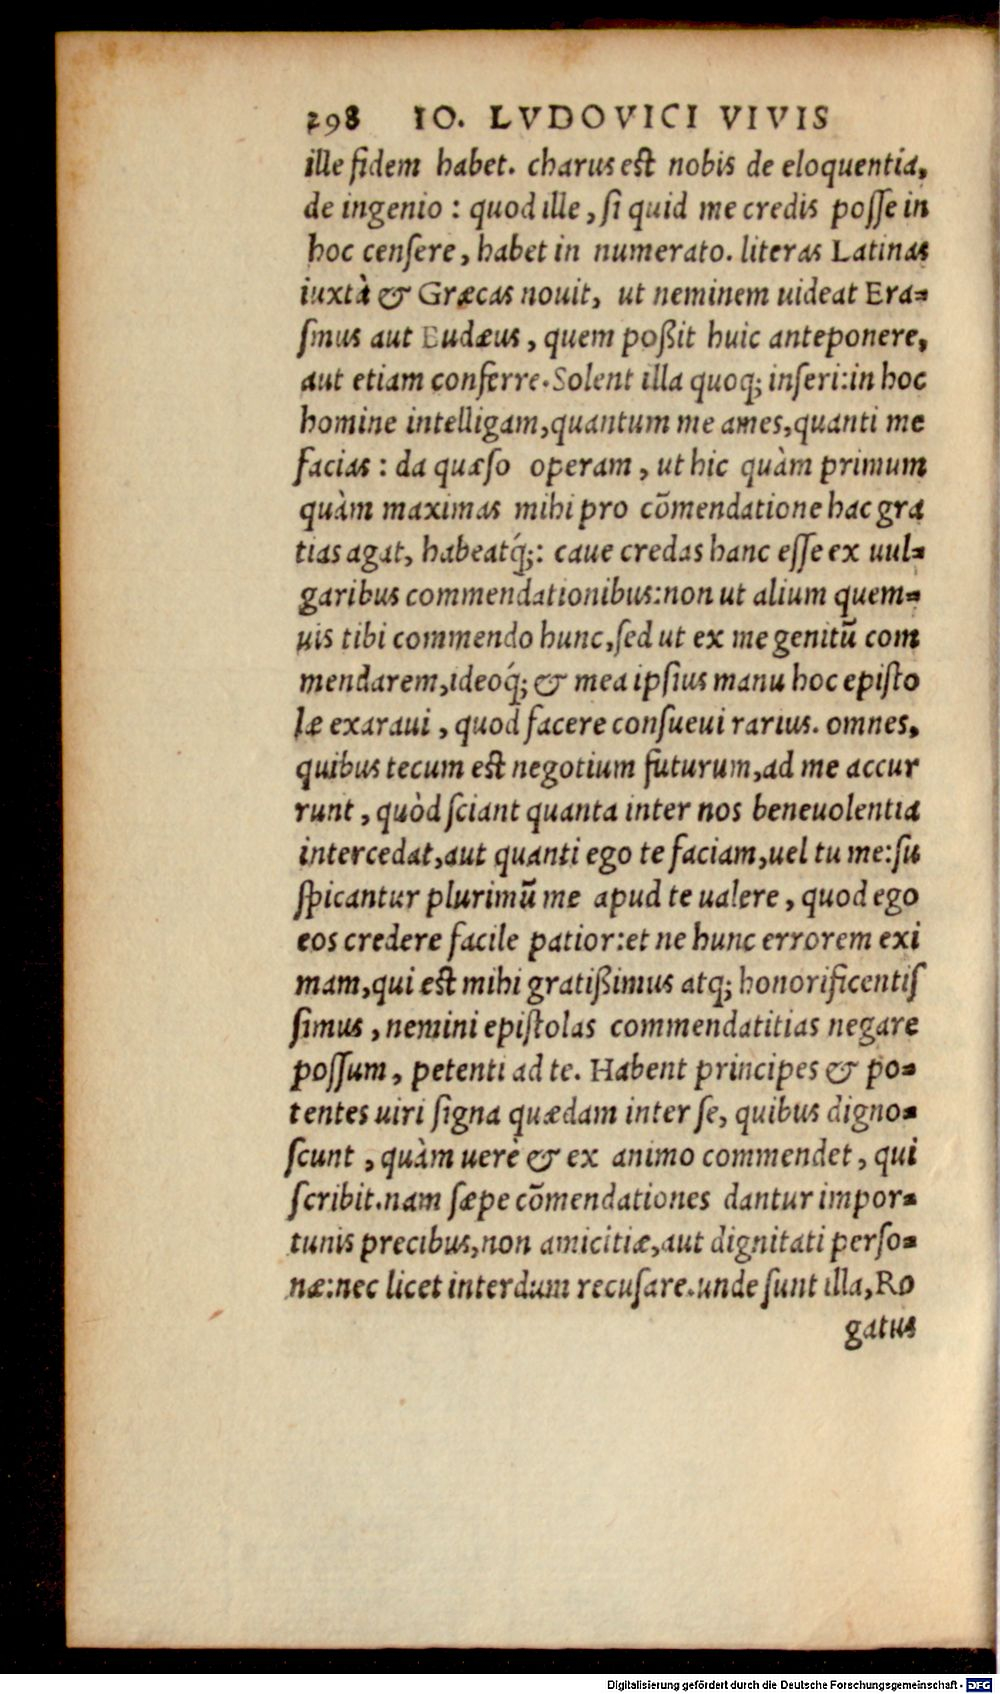 298 IO. LVDOVICI VIVIS
ille fidem habet. charus est nobis de eloquentia,
de ingenio : quod ille, si quid me credis posse in
hoc censere, habet in numerato. literas Latinas
iuxtà & Græcas nouit, ut neminem uideat Era-
smus aut Budæus, quem poßit huic anteponere,
aut etiam conferre. Solent illa quoq; inseri: in hoc
homine intelligam, quantum me ames, quanti me
facias : da quæso operam, ut hic quàm primum
quàm maximas mihi pro cõmendatione hac gra
tias agat, habeatq́;: caue credas hanc esse ex uul-
garibus commendationibus: non ut alium quem-
uis tibi commendo hunc, sed ut ex me genitũ com
mendarem, ideoq́; & mea ipsius manu hoc episto
læ exaraui, quod facere consueui rarius. omnes,
quibus tecum est negotium futurum, ad me accur
runt, quòd sciant quanta inter nos beneuolentia
intercedat, aut quanti ego te faciam, uel tu me: su
spicantur plurimũ me apud te ualere, quod ego
eos credere facile patior: et ne hunc errorem exi
mam, qui est mihi gratißimus atq; honorificentis
simus, nemini epistolas commendatitias negare
possum, petenti ad te. Habent principes & po-
tentes uiri signa quædam inter se, quibus digno-
scunt, quàm uerè & ex animo commendet, qui
scribit. nam sæpe cõmendationes dantur impor-
tunis precibus, non amicitiæ, aut dignitati perso-
næ: nec licet interdum recusare. unde sunt illa, Ro
gatus
Digitalisierung gefördert durch die Deutsche Forschungsgemeinschaft - DFG